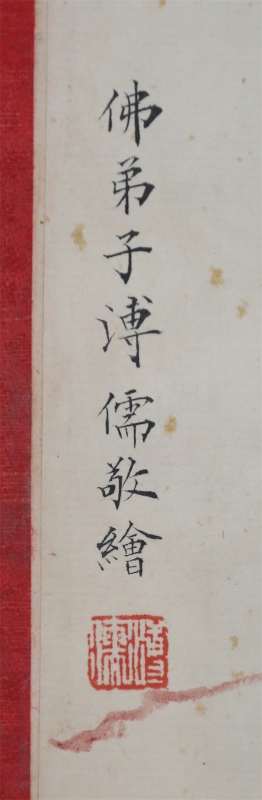 佛弟子溥儒敬繪
溥儒